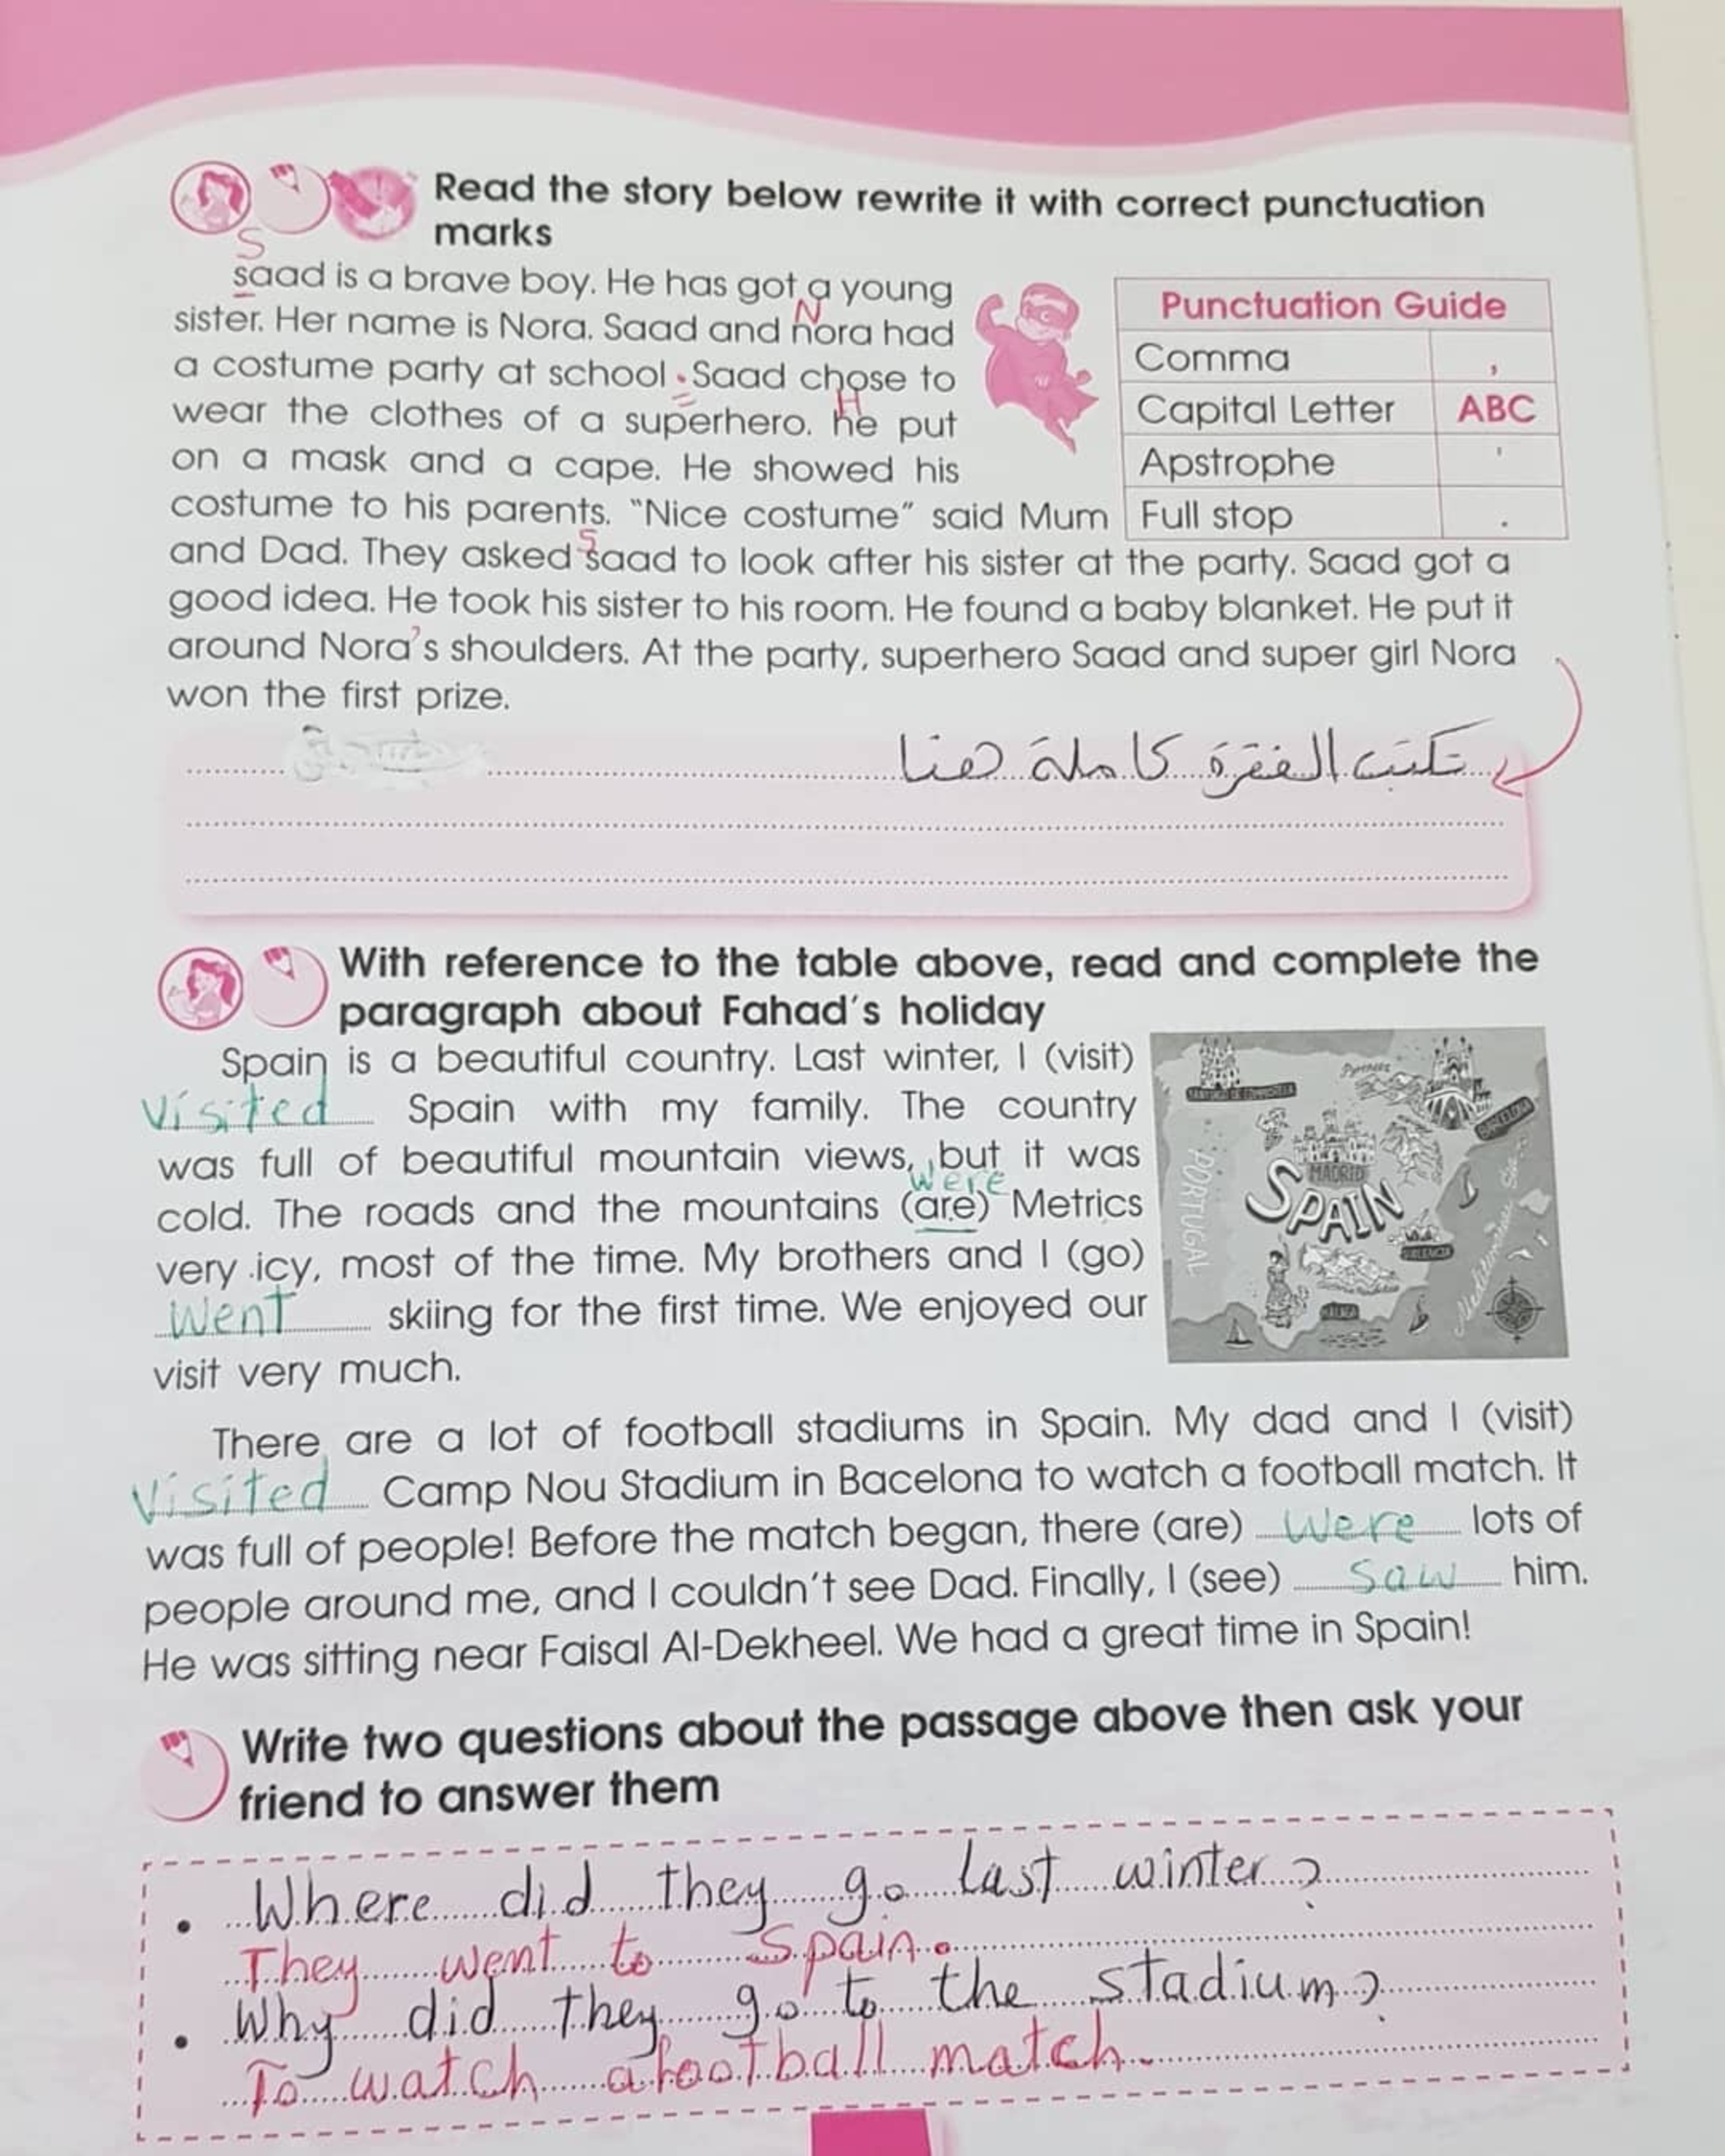 Read the story below rewrite it with correct punctuation
marks
S
saad is a brave boy. He has got a young
N
sister. Her name is Nora. Saad and nora had
a costume party at school . Saad chose to
H
wear the clothes of a superhero. he put
on a mask and a cape. He showed his
costume to his parents. “Nice costume” said Mum
S
and Dad. They asked saad to look after his sister at the party. Saad got a
good idea. He took his sister to his room. He found a baby blanket. He put it
around Nora's shoulders. At the party, superhero Saad and super girl Nora
won the first prize.
Punctuation Guide
Comma ,
Capital Letter ABC
Apstrophe '
Full stop .
تكتب الفقرة كاملة هنا
With reference to the table above, read and complete the
paragraph about Fahad's holiday
Spain is a beautiful country. Last winter, I (visit)
visited Spain with my family. The country
was full of beautiful mountain views, but it was
were
cold. The roads and the mountains (are) Metrics
very icy, most of the time. My brothers and I (go)
went skiing for the first time. We enjoyed our
visit very much.
Pyrenees
BARCELONA
MADRID
PORTUGAL
SPAIN
VALENCIA
There are a lot of football stadiums in Spain. My dad and I (visit)
visited Camp Nou Stadium in Bacelona to watch a football match. It
was full of people! Before the match began, there (are) were lots of
people around me, and I couldn't see Dad. Finally, I (see) saw him.
He was sitting near Faisal Al-Dekheel. We had a great time in Spain!
Write two questions about the passage above then ask your
friend to answer them
• Where did they go last winter?
They went to Spain.
• Why did they go to the stadium?
To watch a football match.